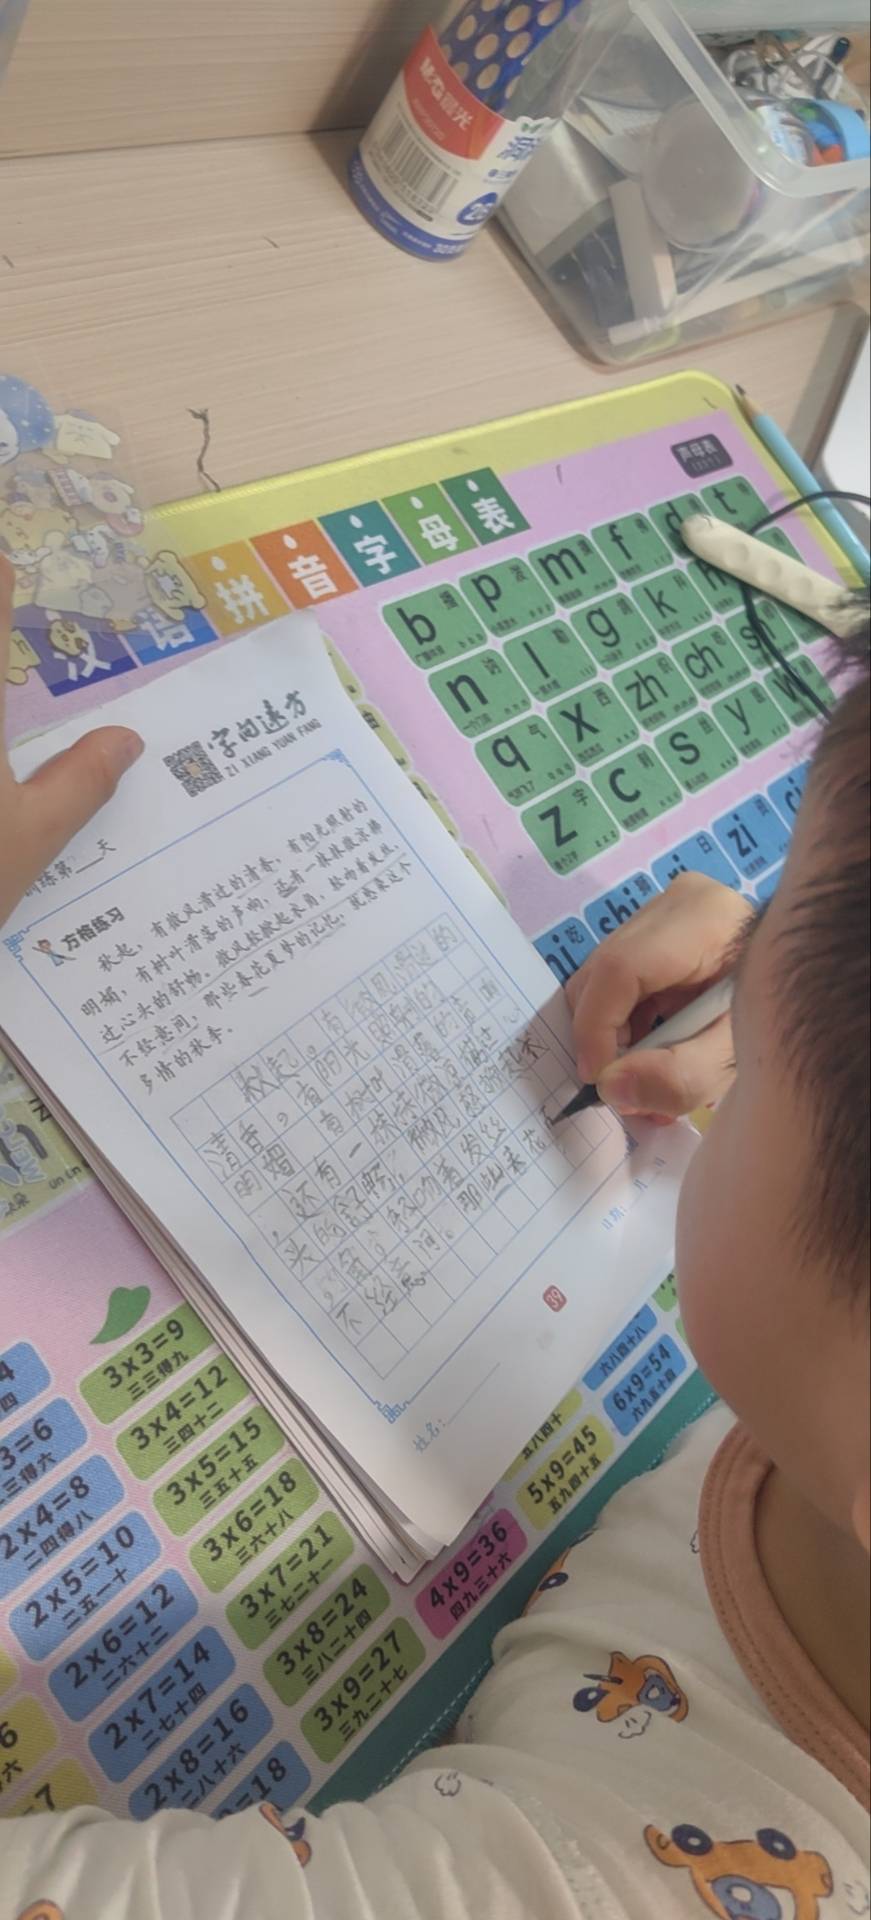 M&G晨光
汉语拼音字母表
声母表
b p m f d t
n l g k h
q x zh ch sh
z c s y w
shi ri zi ci
吃
日
字向远方
ZI XIANG YUAN FANG
训练第__天
方格练习
秋起，有微风滑过的清香，有阳光照射的
明媚，有树叶滑落的声响，还有一抹抹微凉拂
过心头的舒畅。微风轻掀起衣角，轻吻着发丝，
不经意间，那些春花夏梦的记忆，就感染这个
多情的秋季。
秋起。有微风滑过的
清香，有阳光照射的
明媚 有树叶滑落的声响
，还有一抹抹微凉拂过心
头的舒畅，微风轻掀起衣
角 轻吻着发丝
不经意间。那些春花
日期：__月__日
39
姓名：
3×3=9
三三得九
3×4=12
三四十二
3×5=15
三五十五
3×6=18
三六十八
3×7=21
三七二十一
3×8=24
三八二十四
3×9=27
三九二十七
2×4=8
二四得八
2×5=10
二五一十
2×6=12
二六十二
2×7=14
二七十四
2×8=16
二八十六
4×9=36
四九三十六
5×9=45
五九四十五
6×9=54
六九五十四
六八四十八
五八四十